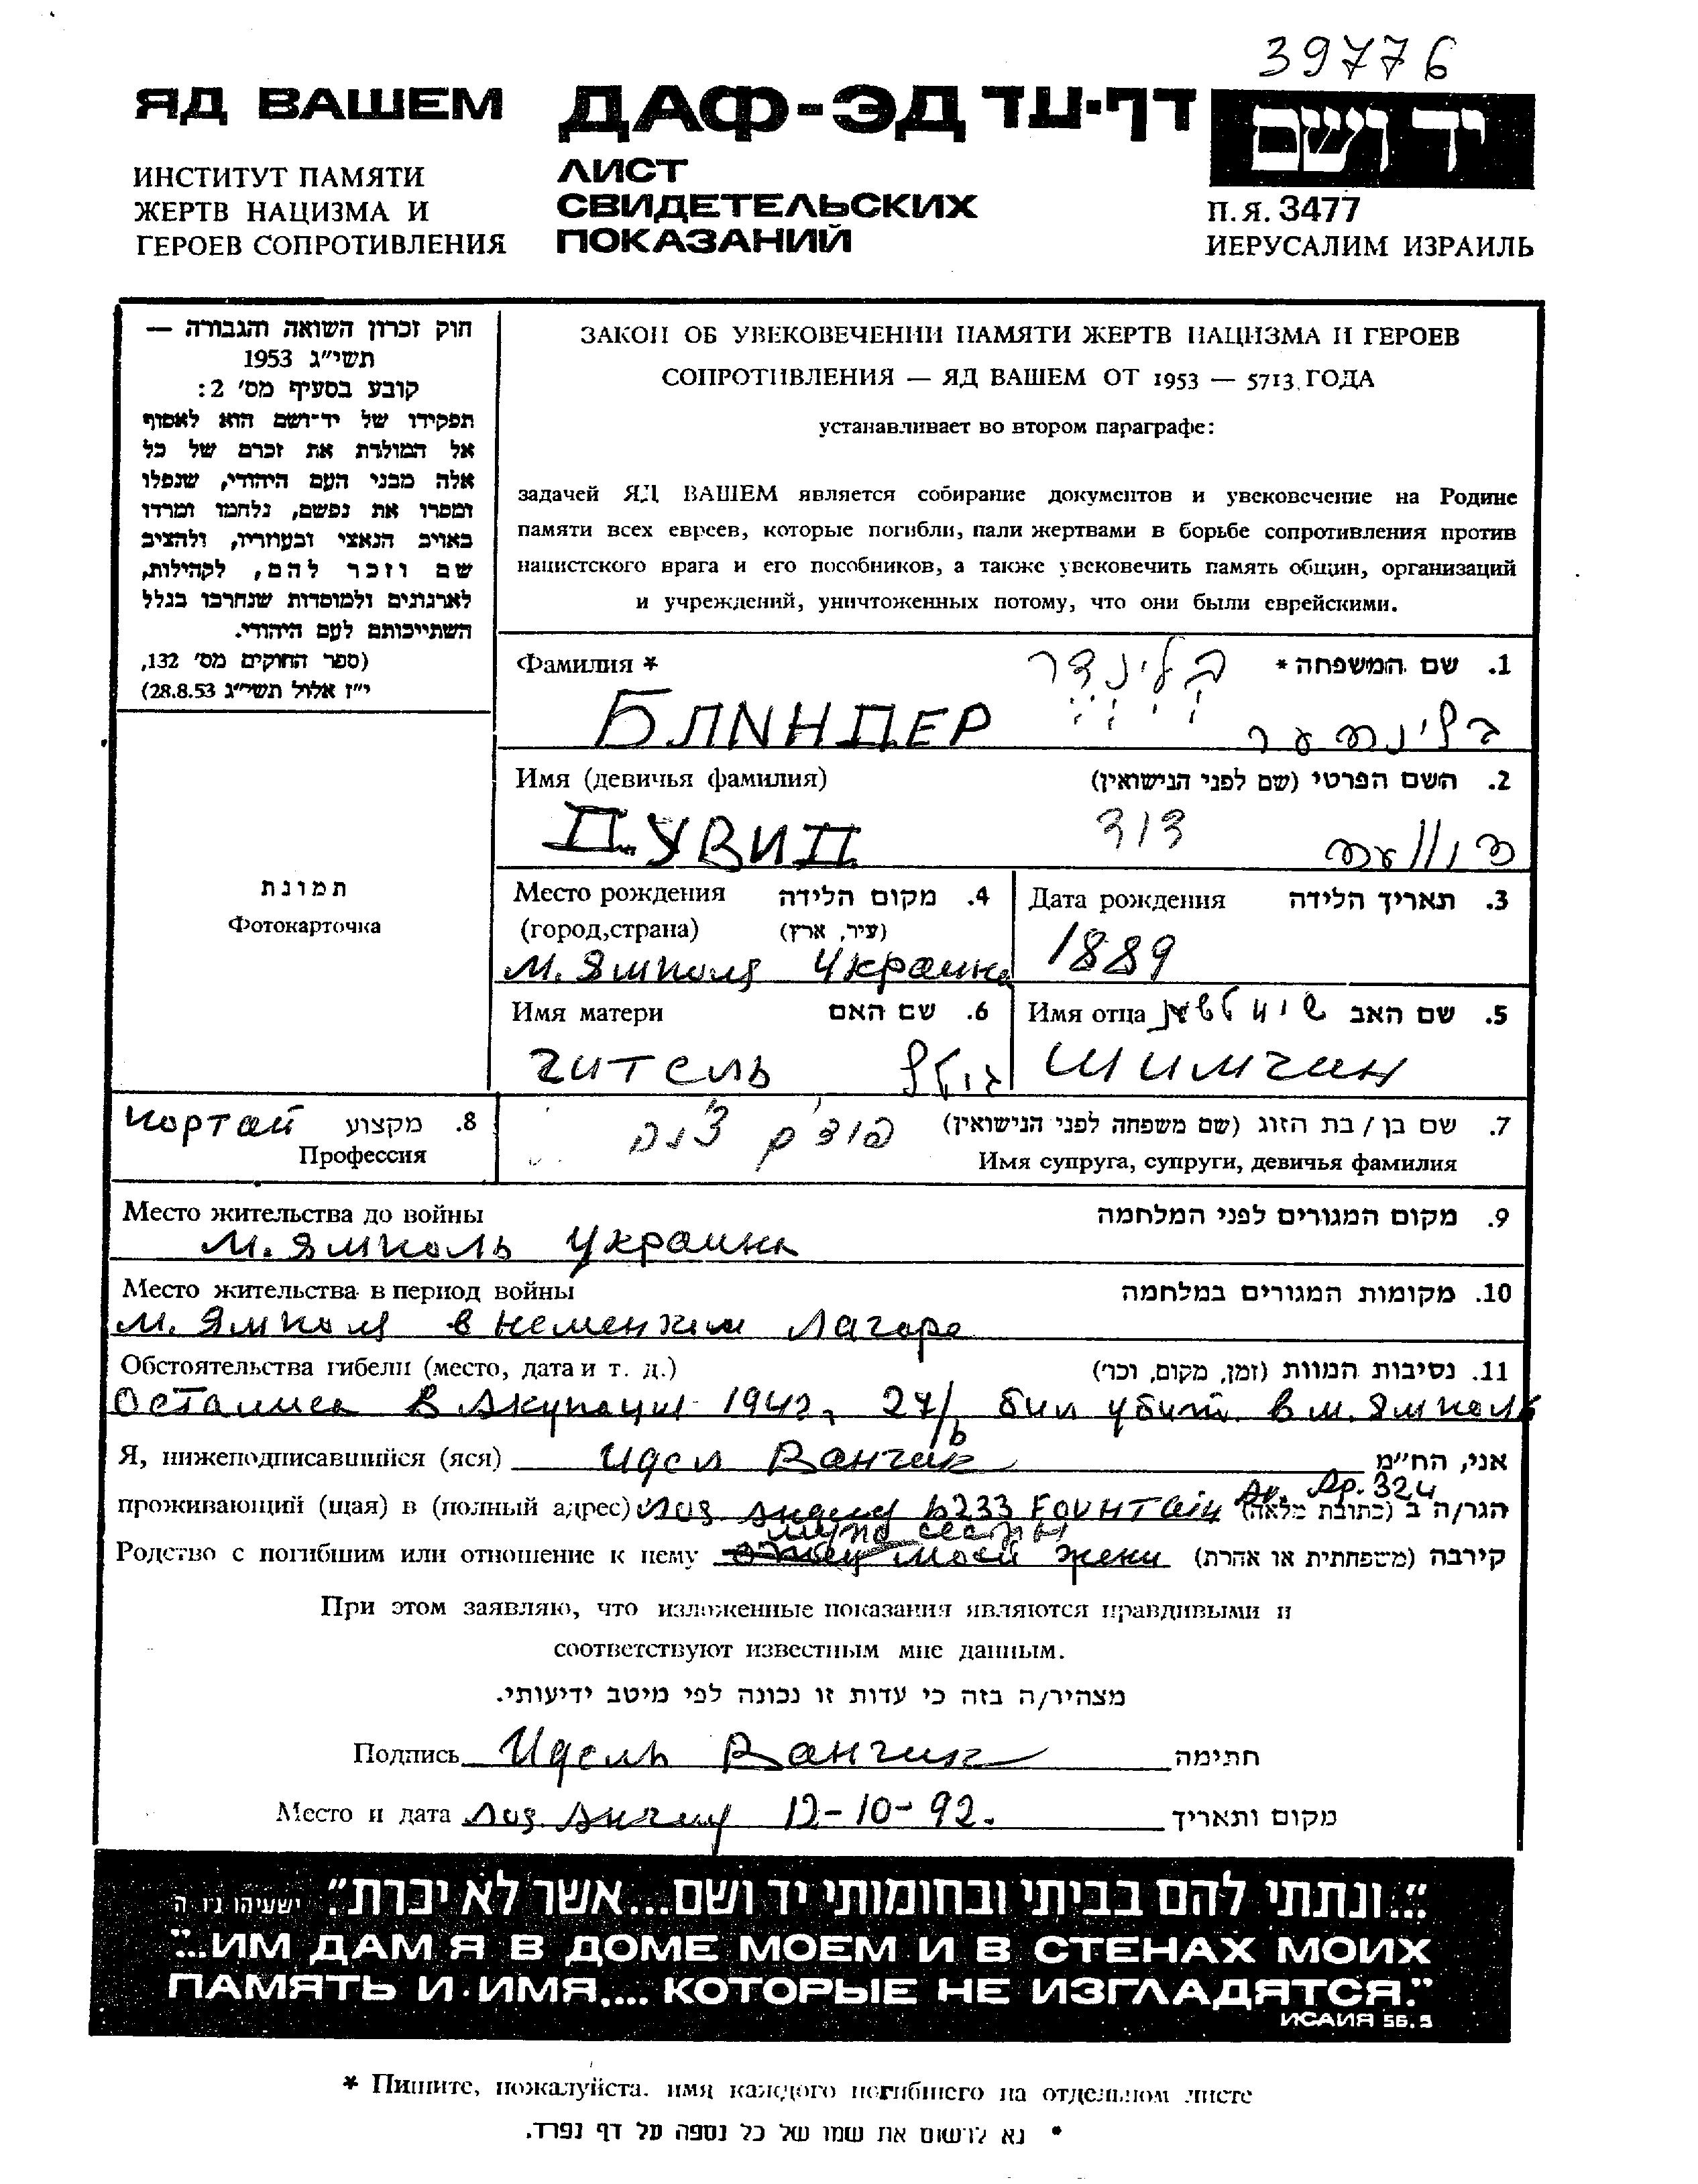 39776
ЯД ВАШЕМ
ДАФ-ЭД דף-עד
יד ושם
ИНСТИТУТ ПАМЯТИ
ЖЕРТВ НАЦИЗМА И
ГЕРОЕВ СОПРОТИВЛЕНИЯ
ЛИСТ
СВИДЕТЕЛЬСКИХ
ПОКАЗАНИЙ
П.Я. 3477
ИЕРУСАЛИМ ИЗРАИЛЬ
חוק זכרון השואה והגבורה —
תשי״ג 1953
קובע בסעיף מס׳ 2:
תפקידו של יד־ושם הוא לאסוף
אל המולדת את זכרם של כל
אלה מבני העם היהודי, שנפלו
ומסרו את נפשם, נלחמו ומרדו
באויב הנאצי ובעוזריו, ולהציב
שם וזכר להם, לקהילות,
לארגונים ולמוסדות שנחרבו בגלל
השתייכותם לעם היהודי.
(ספר החוקים מס׳ 132,
י״ז אלול תשי״ג 28.8.53)
ЗАКОН ОБ УВЕКОВЕЧЕНИИ ПАМЯТИ ЖЕРТВ НАЦИЗМА И ГЕРОЕВ
СОПРОТИВЛЕНИЯ — ЯД ВАШЕМ ОТ 1953 — 5713 ГОДА
устанавливает во втором параграфе:
задачей ЯД ВАШЕМ является собирание документов и увековечение на Родине
памяти всех евреев, которые погибли, пали жертвами в борьбе сопротивления против
нацистского врага и его пособников, а также увековечить память общин, организаций
и учреждений, уничтоженных потому, что они были еврейскими.
Фамилия * בלינדר 1. שם המשפחה *
БЛИНДЕР בלינדער
Имя (девичья фамилия) 2. השם הפרטי (שם לפני הנישואין)
ДУВИД דוד
תמונת
Фотокарточка
Место рождения 4. מקום הלידה
(город,страна) (עיר, ארץ)
м. Ямполя Украина
Дата рождения 3. תאריך הלידה
1889
Имя матери 6. שם האם
гитель
Имя отца 5. שם האב
Шимган
портай 8. מקצוע
Профессия
7. שם בן / בת הזוג (שם משפחה לפני הנישואין)
Имя супруга, супруги, девичья фамилия
Место жительства до войны 9. מקום המגורים לפני המלחמה
м. Ямполь Украина
Место жительства в период войны 10. מקומות המגורים במלחמה
м. Ямполя в неменким лагере
Обстоятельства гибели (место, дата и т. д.) 11. נסיבות המוות (זמן, מקום, וכר׳)
Осталися в акупации 1942, 27/6 бил убит в м. Ямполь
Я, нижеподписавшийся (яся) Идел Ванчик אני, הח״מ
проживающий (щая) в (полный адрес) Лоз Анджел 6233 FOUHTAin Av. Ap. 324 הגר/ה ב (כתובת מלאה)
мужа сестры
Родство с погибшим или отношение к нему моей жени קירבה (משפחתית או אחרת)
При этом заявляю, что изложенные показания являются правдивыми и
соответствуют известным мне данным.
מצהיר/ה בזה כי עדות זו נכונה לפי מיטב ידיעותי.
Подпись Идель Ванчик חתימה
Место и дата Лоз Анжел 12-10-92. מקום ותאריך
״...ונתתי להם בביתי ובחומותי יד ושם...אשר לא יכרת״. ישעיהו נ״ו ה
"...ИМ ДАМ Я В ДОМЕ МОЕМ И В СТЕНАХ МОИХ
ПАМЯТЬ И ИМЯ,... КОТОРЫЕ НЕ ИЗГЛАДЯТСЯ."
ИСАИЯ 56.5
* Пишите, пожалуйста. имя каждого погибшего на отдельном листе
* נא לרשום את שמו של כל נספה על דף נפרד.